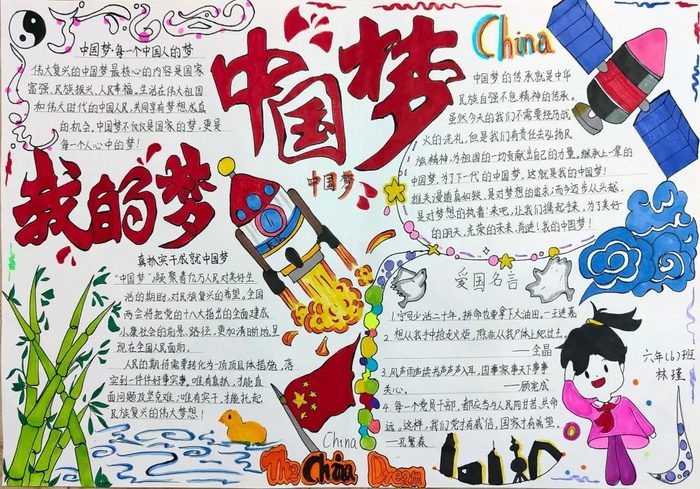 中国梦·每一个中国人的梦
伟大复兴的中国梦最核心的内容是国家
富强、民族振兴、人民幸福。生活在伟大祖国
和伟大时代的中国人民,共同享有梦想成真
的机会。中国梦不仅仅是国家的梦,更是
每一个人心中的梦!
中国梦
China
中国梦
我的梦
中国梦的传承就是中华
民族自强不息精神的传承。
虽然今天的我们不需要经历战
火的洗礼,但是我们有责任去弘扬民
族精神,为祖国的一切贡献出自己的力量。继承上一辈的
中国梦,为了下一代的中国梦,这就是我的中国梦!
雄关漫道真如铁,是对梦想的追求;而今迈步从头越,
是对梦想的执着!来吧,让我们携起手来,为了美好
的明天,光荣的未来,奋进!我的中国梦!
真抓实干成就中国梦
“中国梦”凝聚着亿万人民对美好生
活的期盼,对民族复兴的希望。全国
两会将把党的十八大指出的全面建成
小康社会的前景、路径,更加清晰地呈
现在全国人民面前。
人民的期待需要转化为一项项具体措施,落
实到一件件好事实事。唯有真抓,才能直
面问题攻坚克难;唯有实干,才能托起
民族复兴的伟大梦想!
爱国名言
1.宁可少活二十年,拼命也要拿下大油田。—王进喜
2.想从我手中抢走火炬,除非从我尸体上纪过去。
——金晶
3.风声雨声读书声声声入耳,国事家事天下事事事
关心。——顾宪成
4.每一个党员干部,都应当与人民同甘苦,共命
运。这样,我们党才有威信,国家才有希望。
—孔繁森
六年(6)班
林瑾
China
The China Dream